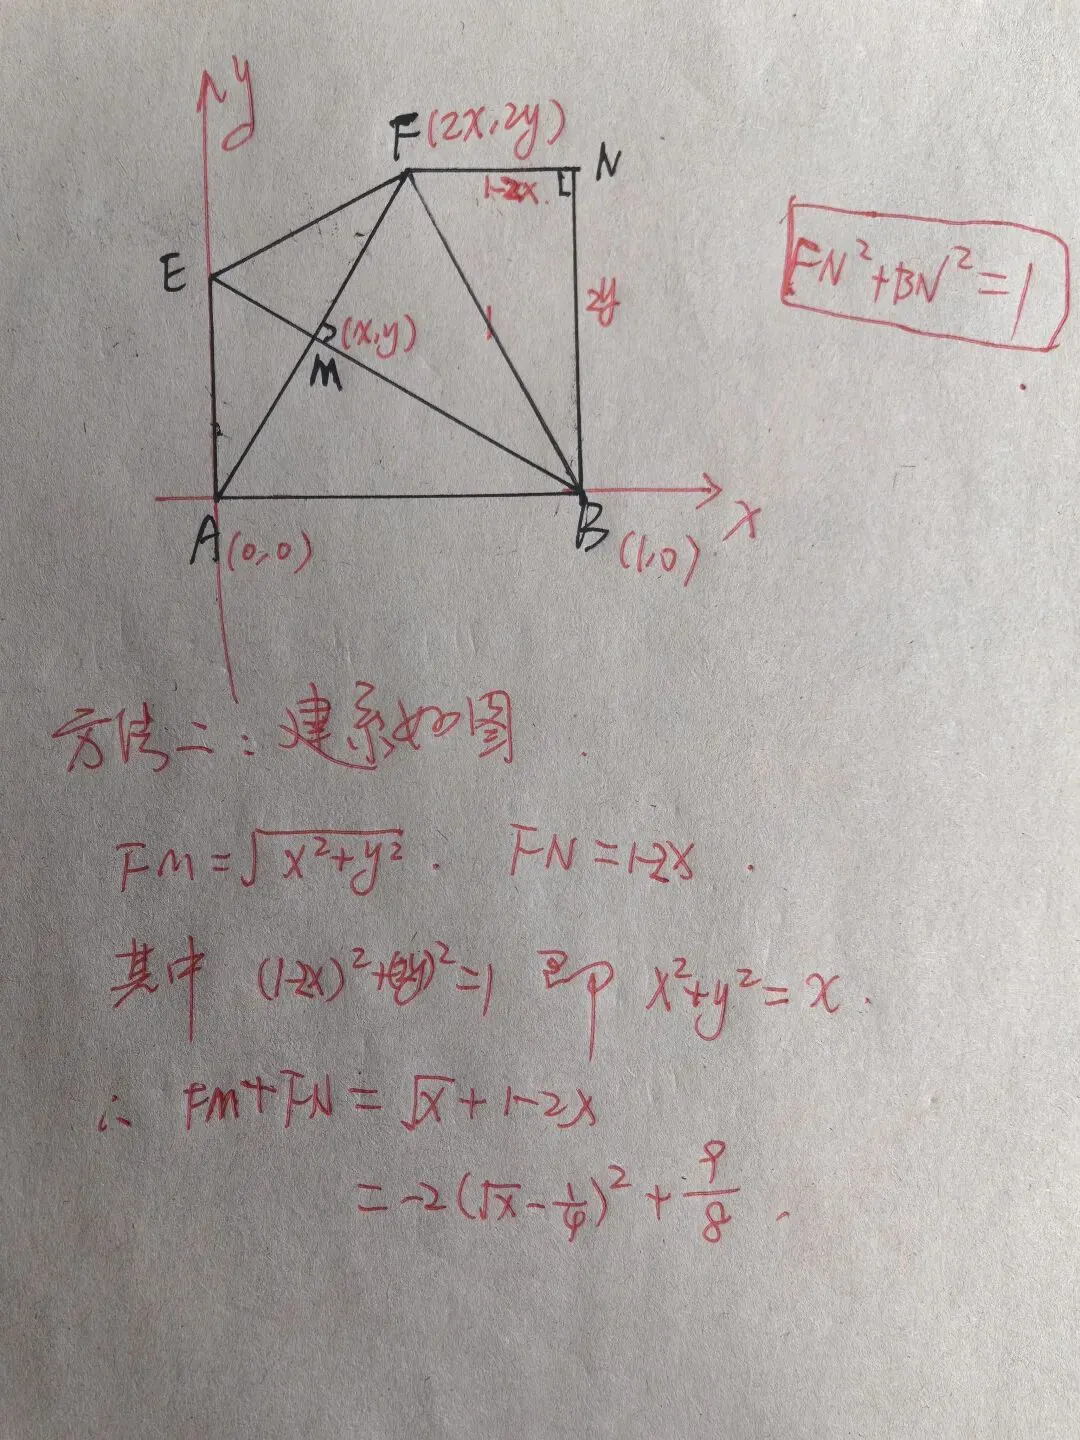 y
F(2x,2y)
N
1-2x
E
FN²+BN²=1
2y
1
(x,y)
M
A(0,0)
B
(1,0)
x
方法二:建系如图
FM=√(x²+y²). FN=1-2x.
其中 (1-2x)²+(2y)²=1 即 x²+y²=x.
∴ FM+FN=√x+1-2x
=-2(√x-1/4)²+9/8.